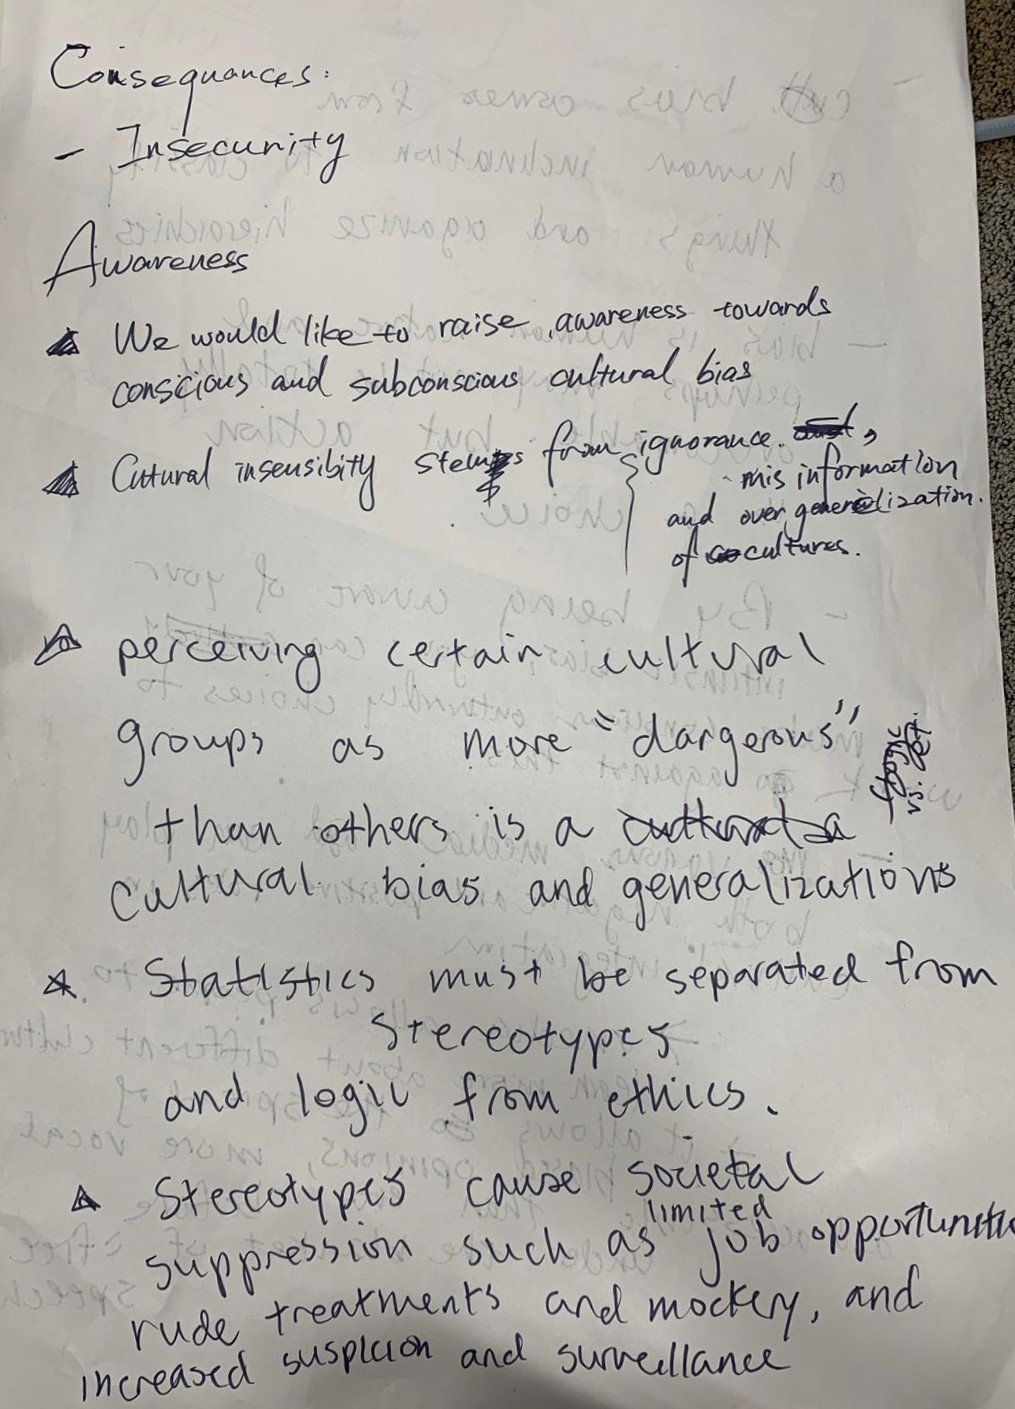 Consequances:
- Insecurity
Awareness
We would like to raise awareness towards
conscious and subconscious cultural bias
Cultural insensibity stems from ignorance,
misinformation
and over generalization.
of cultures.
perceiving certain cultural
groups as more "dangerous"
than others is a
cultural bias and generalizations
logic
vs.
Statistics must be separated from
stereotypes
and logic from ethics.
Stereotypes cause societal
limited
suppression such as job
rude treatments and mockery, and
increased suspicion and surveillance